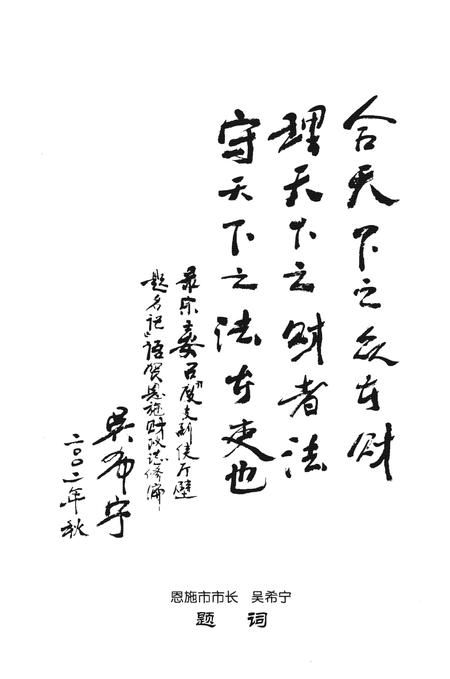 合天下之众者财
理天下之财者法
守天下之法者吏也
录宋王安石《度支副使厅壁
题名记》语贺恩施财政志修编
吴希宁
二〇〇二年秋
恩施市市长 吴希宁
题 词